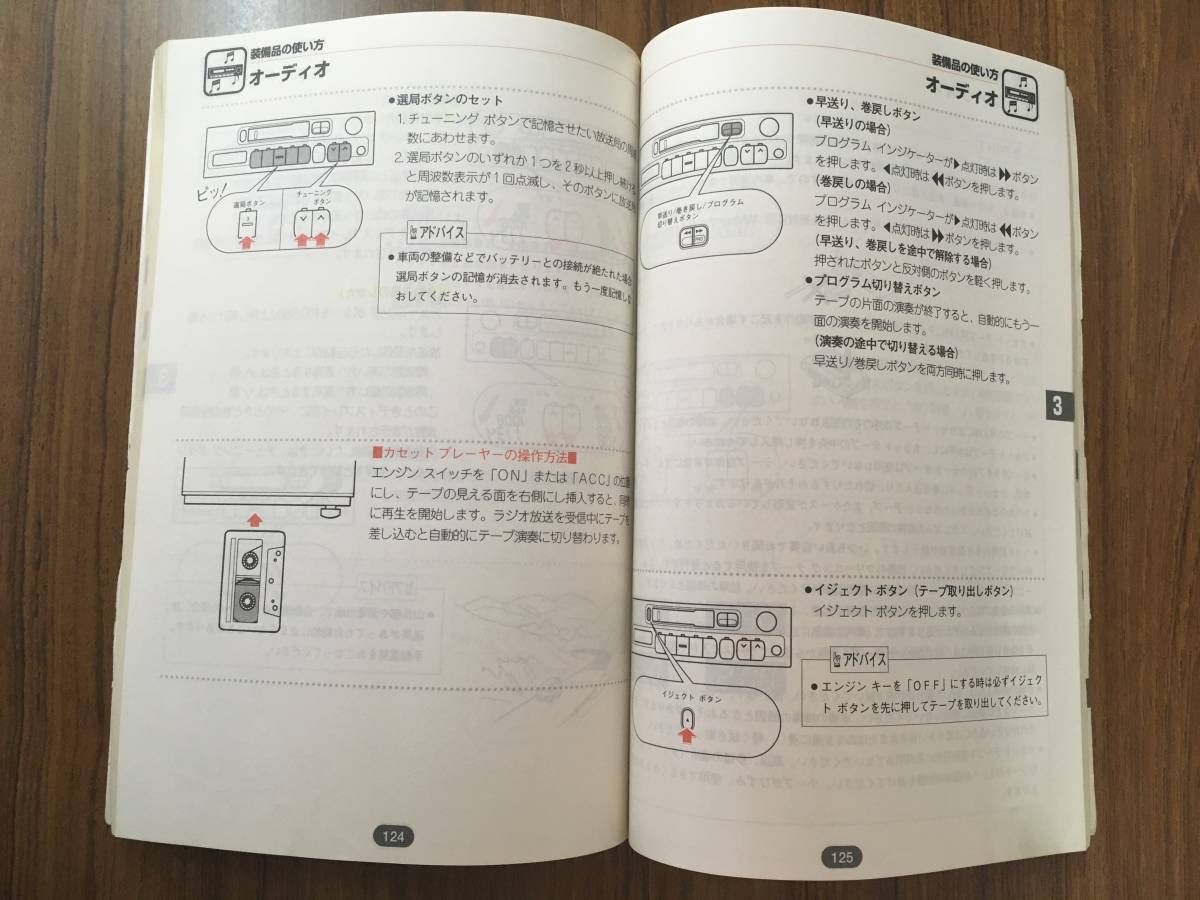 装備品の使い方
オーディオ
●選局ボタンのセット
1. チューニング ボタンで記憶させたい放送局の周波
数にあわせます。
2. 選局ボタンのいずれか1つを2秒以上押し続ける
と周波数表示が1回点滅し、そのボタンに放送局
が記憶されます。
ピッ!
選局ボタン
チューニング
ボタン
アドバイス
●車両の整備などでバッテリーとの接続が絶たれた場合
選局ボタンの記憶が消去されます。もう一度記憶しな
おしてください。
■カセット プレーヤーの操作方法■
エンジン スイッチを「ON」または「ACC」の位置
にし、テープの見える面を右側にし挿入すると、同時
に再生を開始します。ラジオ放送を受信中にテープを
差し込むと自動的にテープ演奏に切り替わります。
124
装備品の使い方
オーディオ
●早送り、巻戻しボタン
(早送りの場合)
プログラム インジケーターが▶点灯時は▶▶ボタン
を押します。◀点灯時は◀◀ボタンを押します。
(巻戻しの場合)
プログラム インジケーターが▶点灯時は◀◀ボタン
を押します。◀点灯時は▶▶ボタンを押します。
(早送り、巻戻しを途中で解除する場合)
押されたボタンと反対側のボタンを軽く押します。
●プログラム切り替えボタン
テープの片面の演奏が終了すると、自動的にもう一
面の演奏を開始します。
(演奏の途中で切り替える場合)
早送り/巻戻しボタンを両方同時に押します。
早送り/巻き戻し/プログラム
切り替えボタン
PRG
3
●イジェクト ボタン(テープ取り出しボタン)
イジェクト ボタンを押します。
イジェクト ボタン
アドバイス
●エンジン キーを「OFF」にする時は必ずイジェク
ト ボタンを先に押してテープを取り出してください。
125